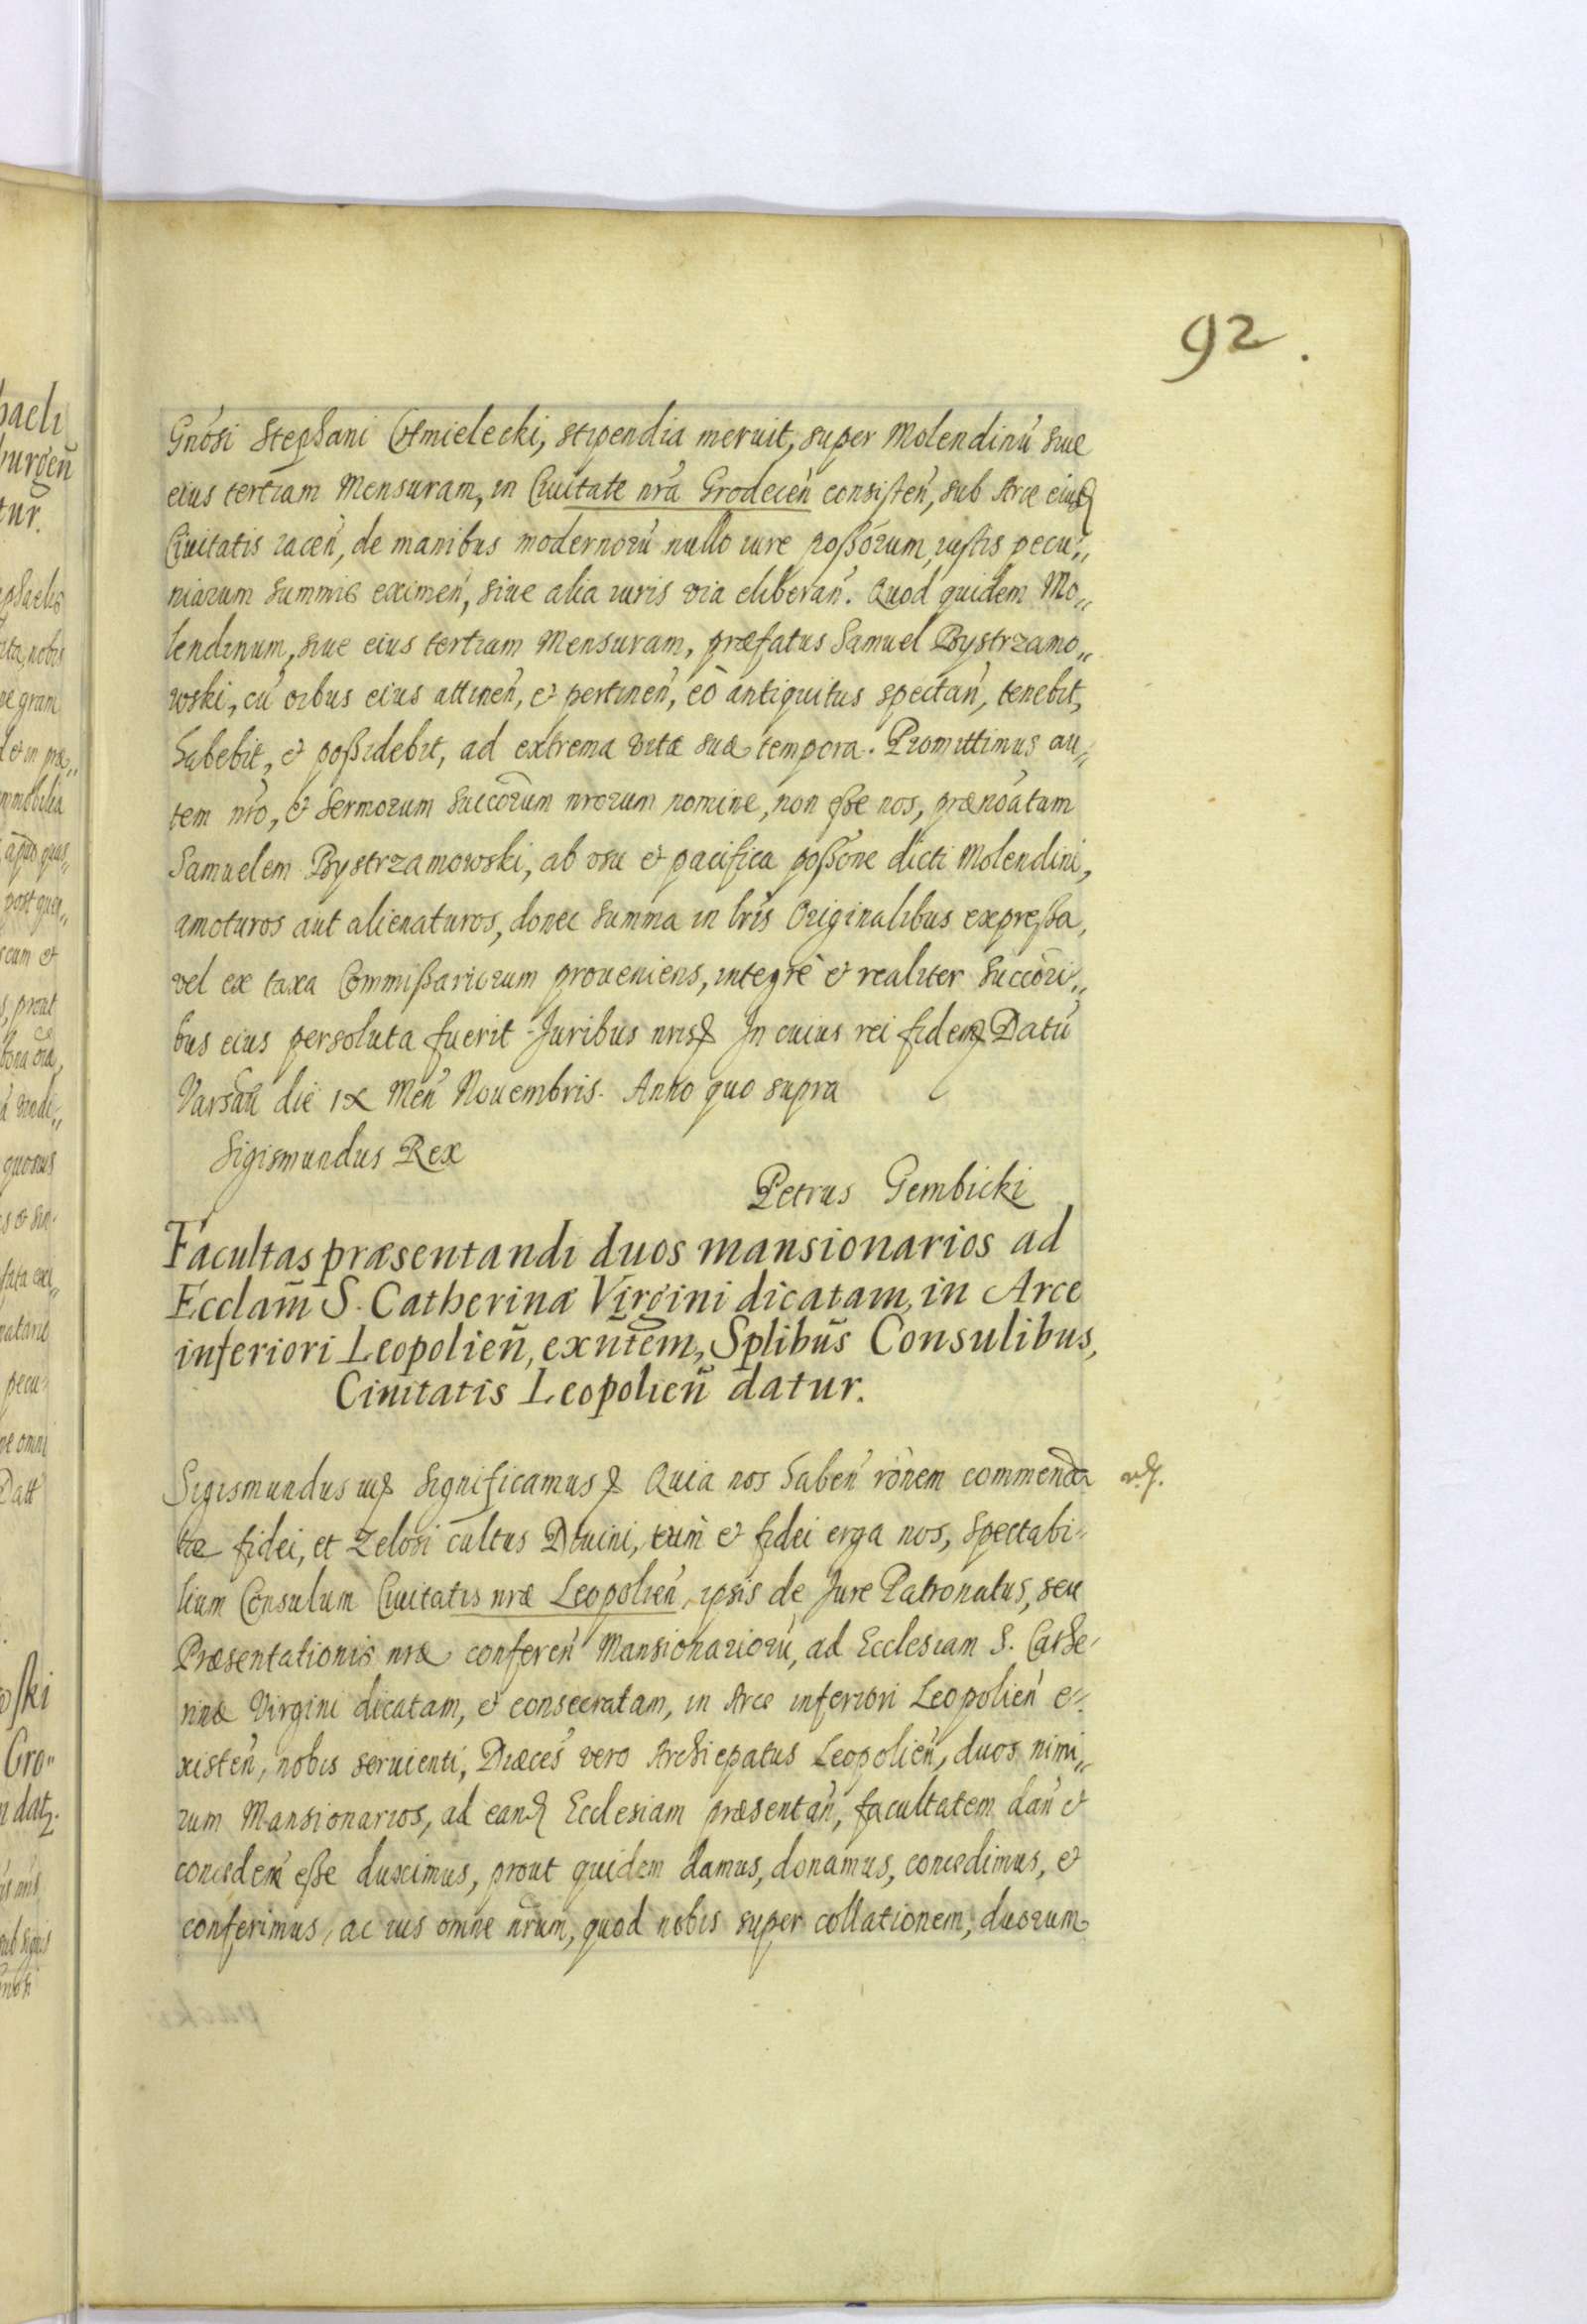 92.
Gnosi Stephani Chmielecki, stipendia meruit, super Molendinũ siue
eius tertiam Mensuram, in Ciuitate nrã Grodecen̄ consisten̄, sub Arce eiusd
Ciuitatis iacen̄, de manibus modernorũ nullo iure possõrum, iustis pecu„
niarum summis eximen̄, siue alia iuris via eliberan̄. Quod quidem Mo„
lendinum, siue eius tertiam Mensuram, præfatus Samuel Bystrzamo„
wski, cũ oĩbus eius attinen̄, et pertinen̄, eò antiquitus spectan̄, tenebit,
habebit, et possidebit, ad extrema vitæ suæ tempora. Promittimus au„
tem nrõ, et Sermorum Succõrum nrorum nomine, non esse nos, prænõatum
Samuelem Bystrzamowski, ab usu et pacifica possõne dicti Molendini,
amoturos aut alienaturos, donec summa in lrĩs Originalibus expressa,
vel ex taxa Commissariorum proueniens, integrè et realiter Succõri„
bus eius persoluta fuerit. Juribus nris In cuius rei fidem Datũ
Varsãu die IX Men̄ Nouembris. Anno quo supra
Sigismundus Rex
Petrus Gembicki
Facultas præsentandi duos mansionarios ad
Ecclam̄ S. Catherinæ Virgini dicatam, in Arce
inferiori Leopolien̄, exñtem, Splibus̄ Consulibus,
Ciuitatis Leopolien̄ datur.
Sigismundus iii Significamus Quia nos haben̄ rõnem commenda
tæ fidei, et zelosi cultus Diuini, tum̄ et fidei erga nos, Spectabi-
lium Consulum Ciuitatis nræ Leopolien̄, ipsis de Jure Patronatus, seu
Præsentationis nræ conferen̄ Mansionariorũ, ad Ecclesiam S. Cathe-
rinæ Virgini dicatam, et consecratam, in Arce inferiori Leopolien̄ e-
xisten̄, nobis seruienti, Diæces̄ vero Archiepatus Leopolien̄, duos nimi„
rum Mansionarios, ad eand Ecclesiam præsentan̄, facultatem dan̄ et
conceden̄ esse duximus, prout quidem damus, donamus, concedimus, et
conferimus, ac ius omne nrũm, quod nobis super collationem, duorum